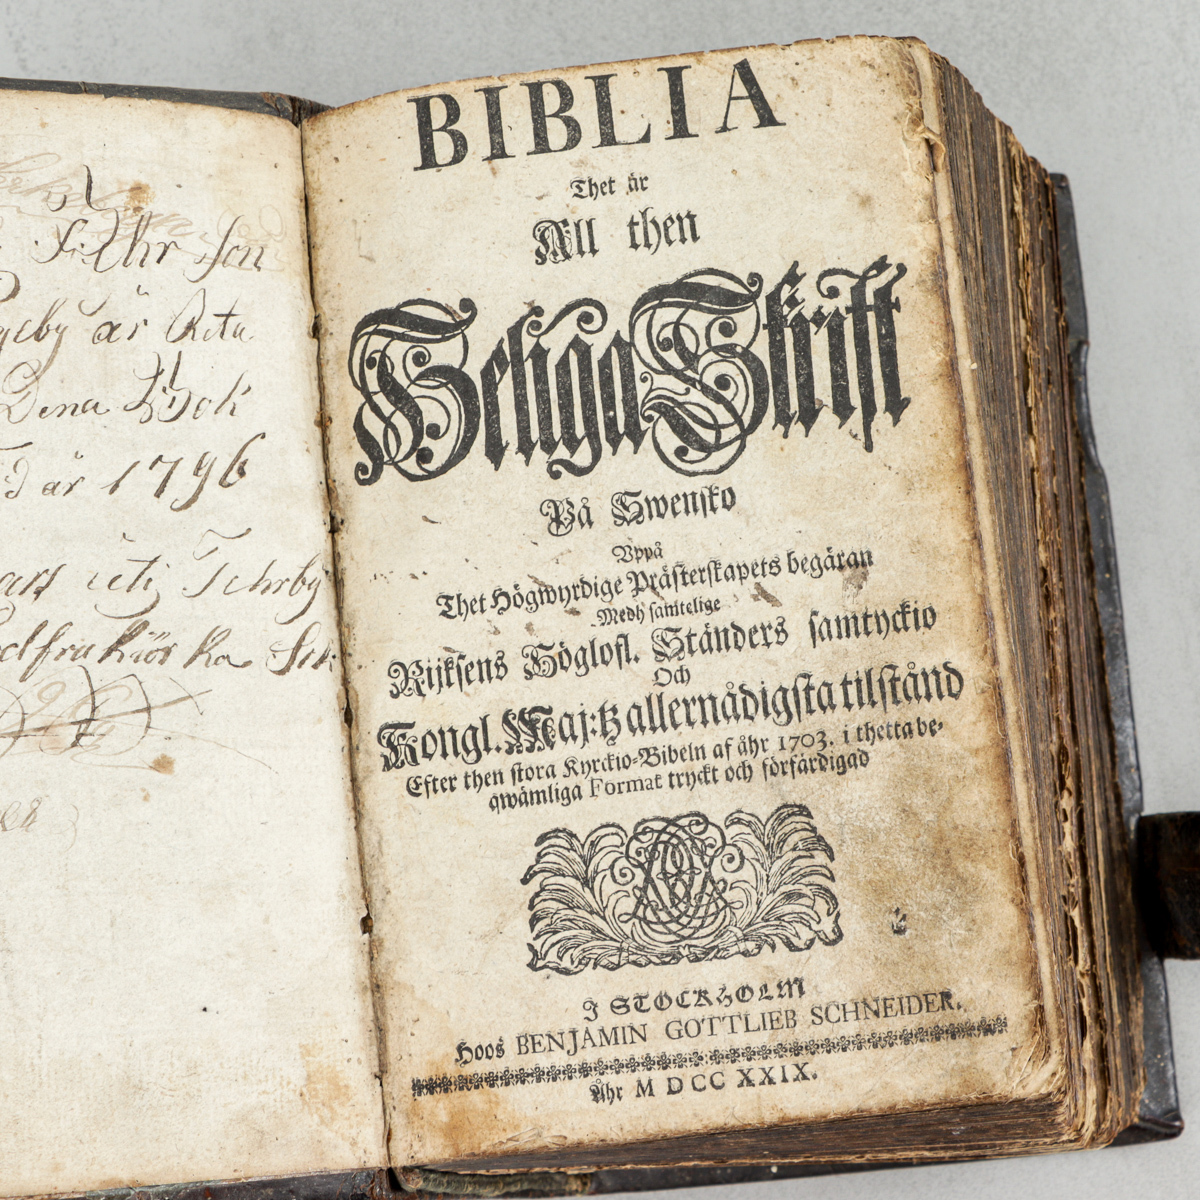 Son
är Rätta
Dena Bok
är 1796
BIBLIA
Thet är
All then
Heliga Skrift
På Swensko
Uppå
Thet Högwyrdige Prästerskapets begäran
Medh samtelige
Rijksens Höglofl. Ständers samtyckio
Och
Kongl. Maj:tz allernådigsta tilstånd
Efter then stora Kyrckio-Bibeln af åhr 1703. i thetta be-
qwämliga Format tryckt och förfärdigad
J STOCKHOLM
Hoos BENJAMIN GOTTLIEB SCHNEIDER.
Åhr M DCC XXIX.